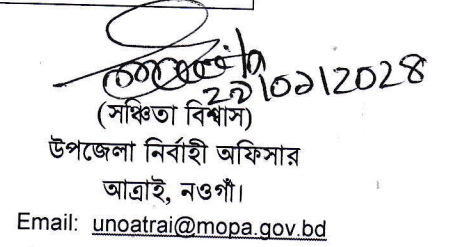 (সঞ্চিতা বিশ্বাস)
উপজেলা নির্বাহী অফিসার
আত্রাই, নওগাঁ।
Email: unoatrai@mopa.gov.bd